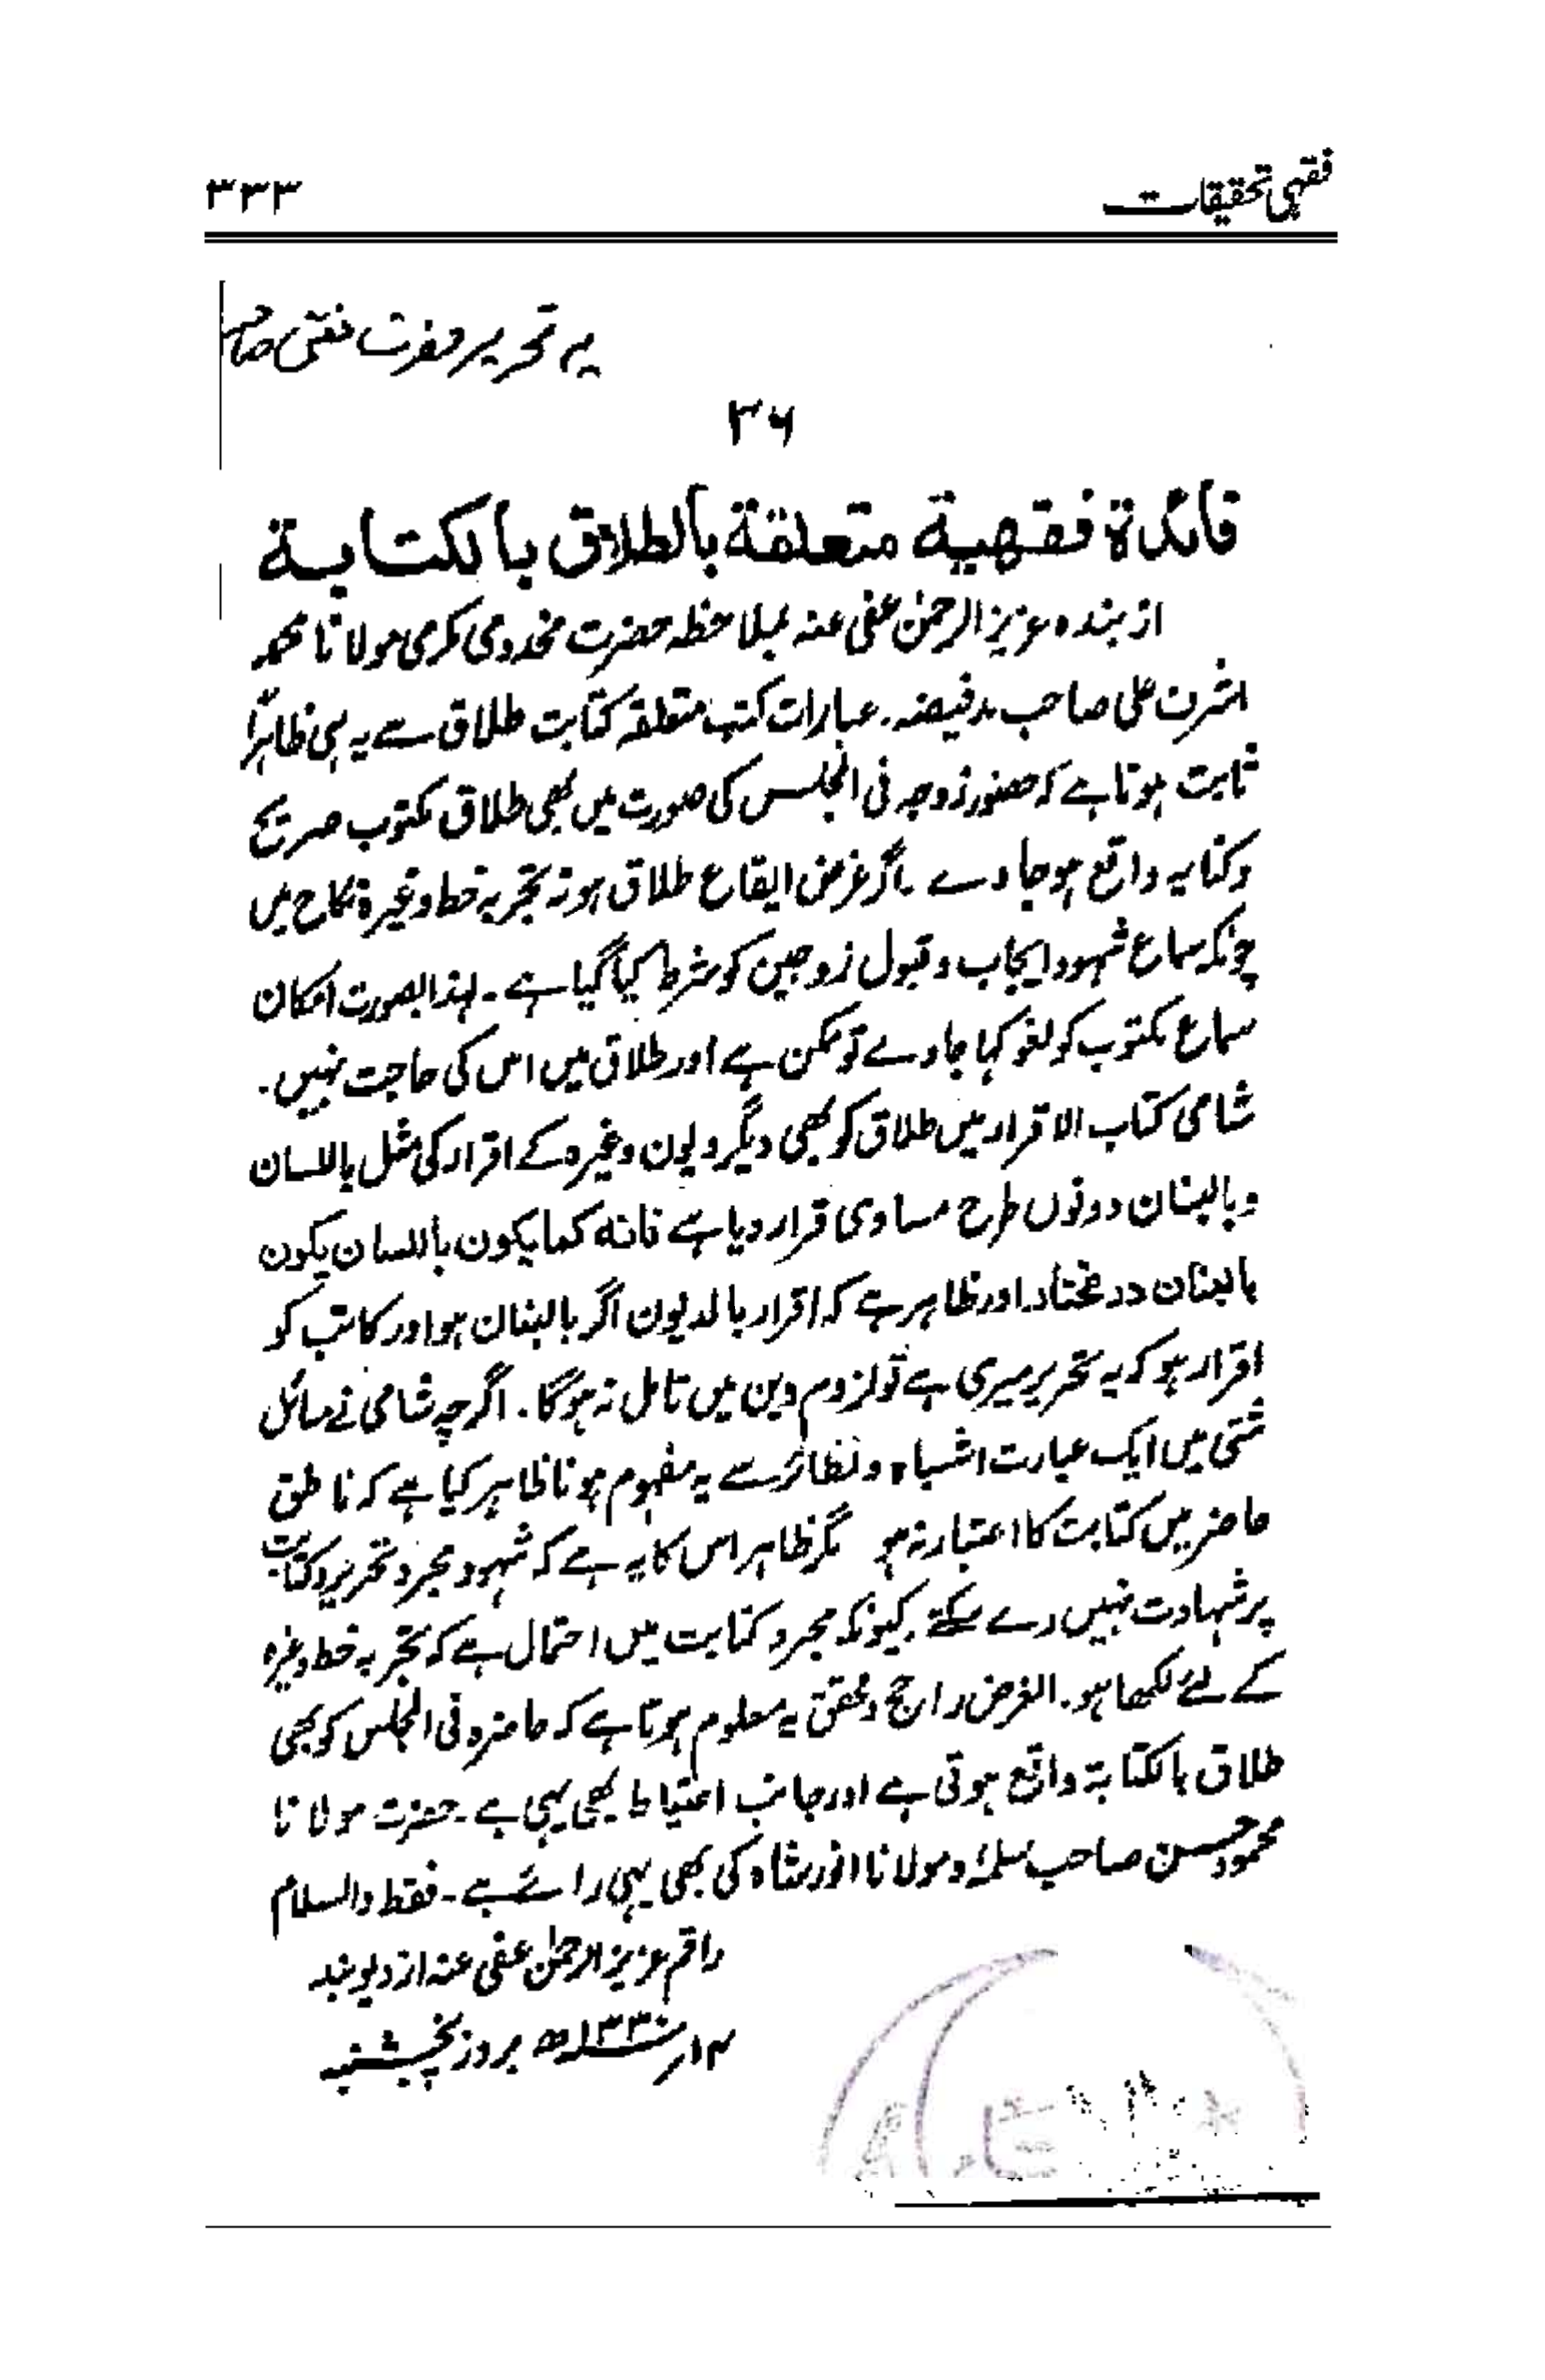 فقہی تحقیقات
۳۳۳
یہ تحریر حضرت مفتی صاحب
۳۶
فائدة فقهية متعلقة بالطلاق بالكتابة
از بندہ عزیز الرحمٰن عفی عنہ بملاحظہ حضرت مخدومی مکرمی مولانا محمد
اشرف علی صاحب مدفیضہ۔ عبارات کتب متعلقہ کتابت طلاق سے یہ ہی ظاہراً
ثابت ہوتا ہے کہ حضور زوجہ فی المجلس کی صورت میں بھی طلاق مکتوب صریح
وکنایہ واقع ہوجاوے۔ اگر غرض ایقاع طلاق ہو نہ تجربہ خط وغیرہ نکاح میں
چونکہ سماع شہود ایجاب وقبول زوجین کو شرط کیا گیا ہے۔ لہذا بصورت امکان
سماع مکتوب کو لغو کہا جاوے تو ممکن ہے اور طلاق میں اس کی حاجت نہیں۔
شامی کتاب الاقرار میں طلاق کو بھی دیگر دیون وغیرہ کے اقرار کی مثل باللسان
وبالبنان دونوں طرح مساوی قرار دیا ہے فانه كما يكون باللسان يكون
بالبنان در مختار اور ظاہر ہے کہ اقرار بالدیون اگر بالبنان ہو اور کاتب کو
اقرار ہو کہ یہ تحریر میری ہے تو لزوم دین میں تامل نہ ہوگا۔ اگرچہ شامی نے مسائل
شتی میں ایک عبارت اشباہ ونظائر سے یہ مفہوم ہونا ظاہر کیا ہے کہ ناطق
حاضر میں کتابت کا اعتبار نہ ہو مگر ظاہر اس کا یہ ہے کہ شہود مجرد تحریر وکتابت
پر شہادت نہیں دے سکتے۔ کیونکہ مجرد کتابت میں احتمال ہے کہ تجربہ خط وغیرہ
کے لئے لکھا ہو۔ الغرض راجح ومحقق یہ معلوم ہوتا ہے کہ حاضرہ فی المجلس کو بھی
طلاق بالکتابۃ واقع ہوتی ہے اور جانب احتیاط بھی یہی ہے۔ حضرت مولانا
محمود حسن صاحب سلمہٗ ومولانا انور شاہ کی بھی یہی رائے ہے۔ فقط والسلام
راقم عزیز الرحمٰن عفی عنہ از دیوبند
۱۳۳۰ھ بروز پنجشنبہ